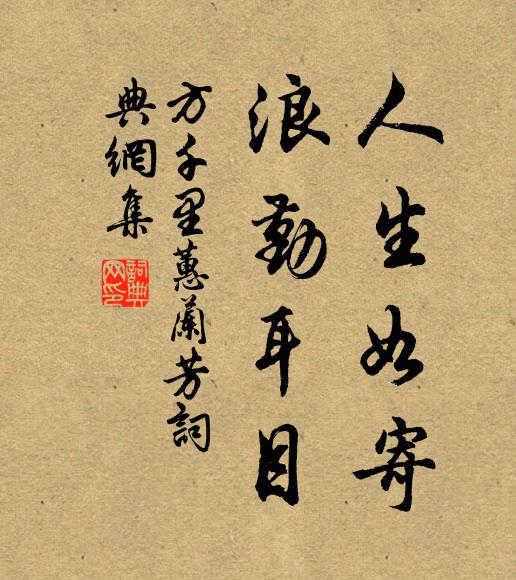 人生如寄
浪勤耳目
方千里蕙蘭芳詞
典網集
詞典網印